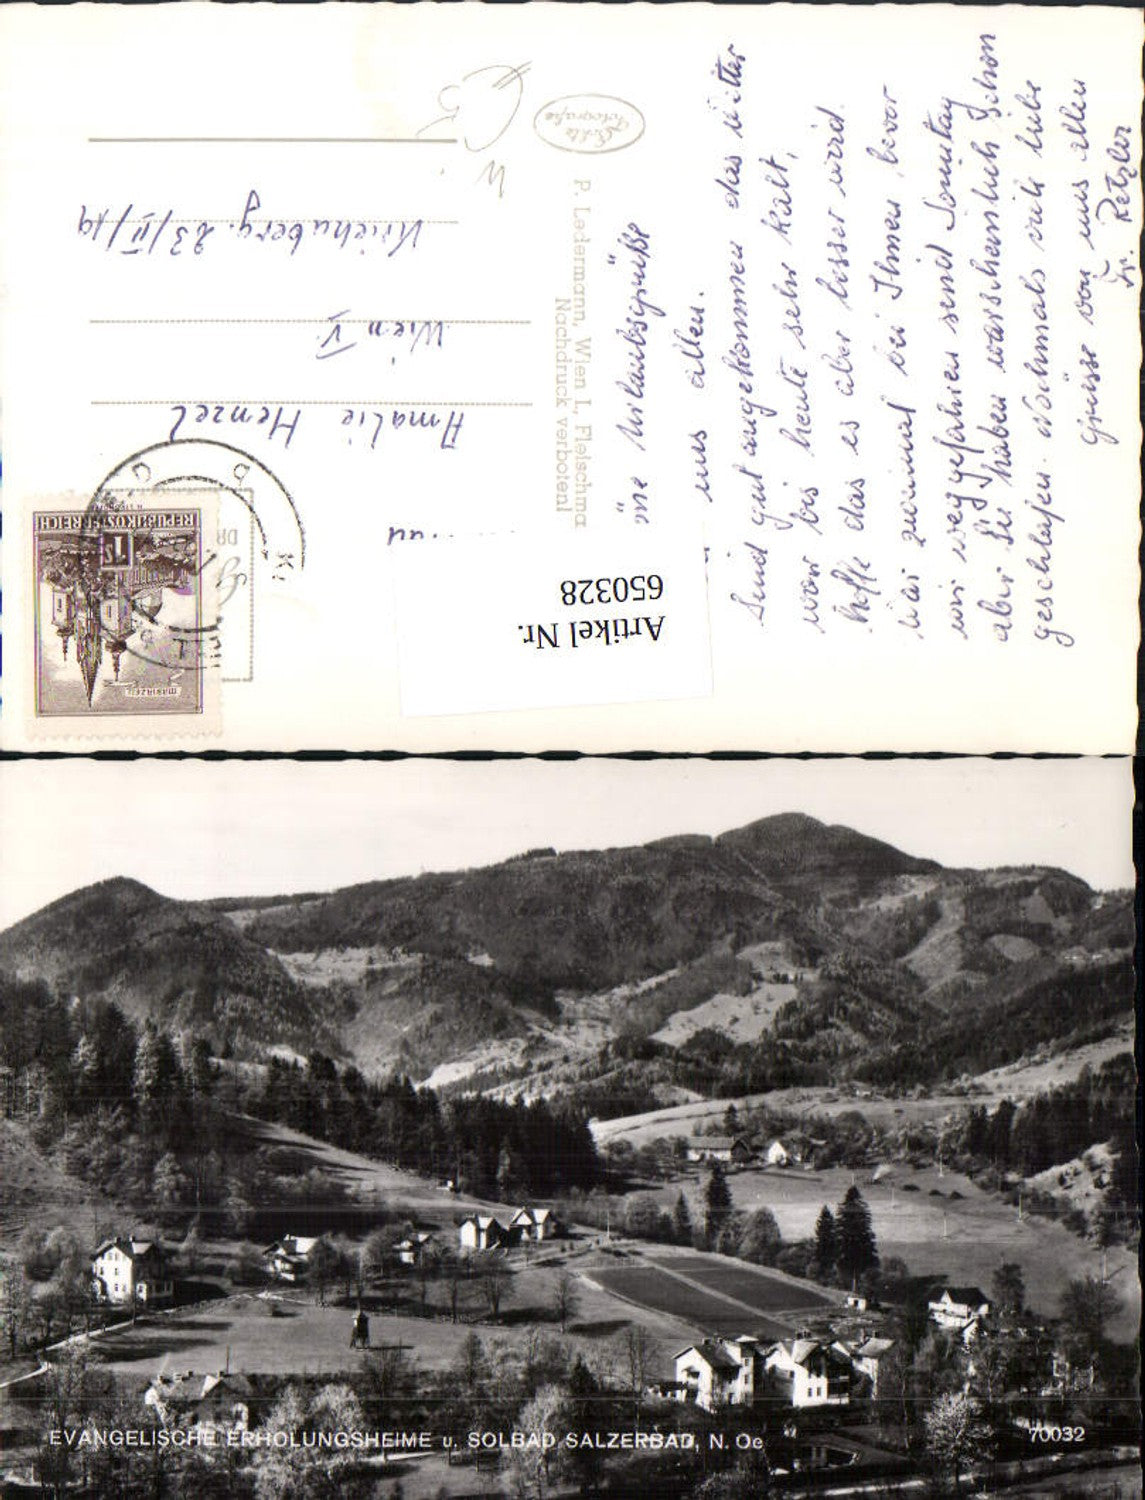 ...üe Urlaubsgrüße
uns allen.
Sind gut angekommen das Wetter
war bis heute sehr kalt,
hoffe das es aber besser wird.
War zweimal bei Ihnen bevor
wir weggefahren sind Sonntag
aber Sie haben warscheinlich schon
geschlafen. Nochmals viele liebe
Grüsse von uns allen
Fr. Retzler
P. Ledermann, Wien I., Fleischma
Nachdruck verboten!
Echte
Fotografie
REPUBLIK ÖSTERREICH
1 S
MARIAZELL
Amalie Henzel
Wien V
Kriehuberg. 23/II/19
W
Artikel Nr.
650328
EVANGELISCHE ERHOLUNGSHEIME u. SOLBAD SALZERBAD, N. Oe
70032